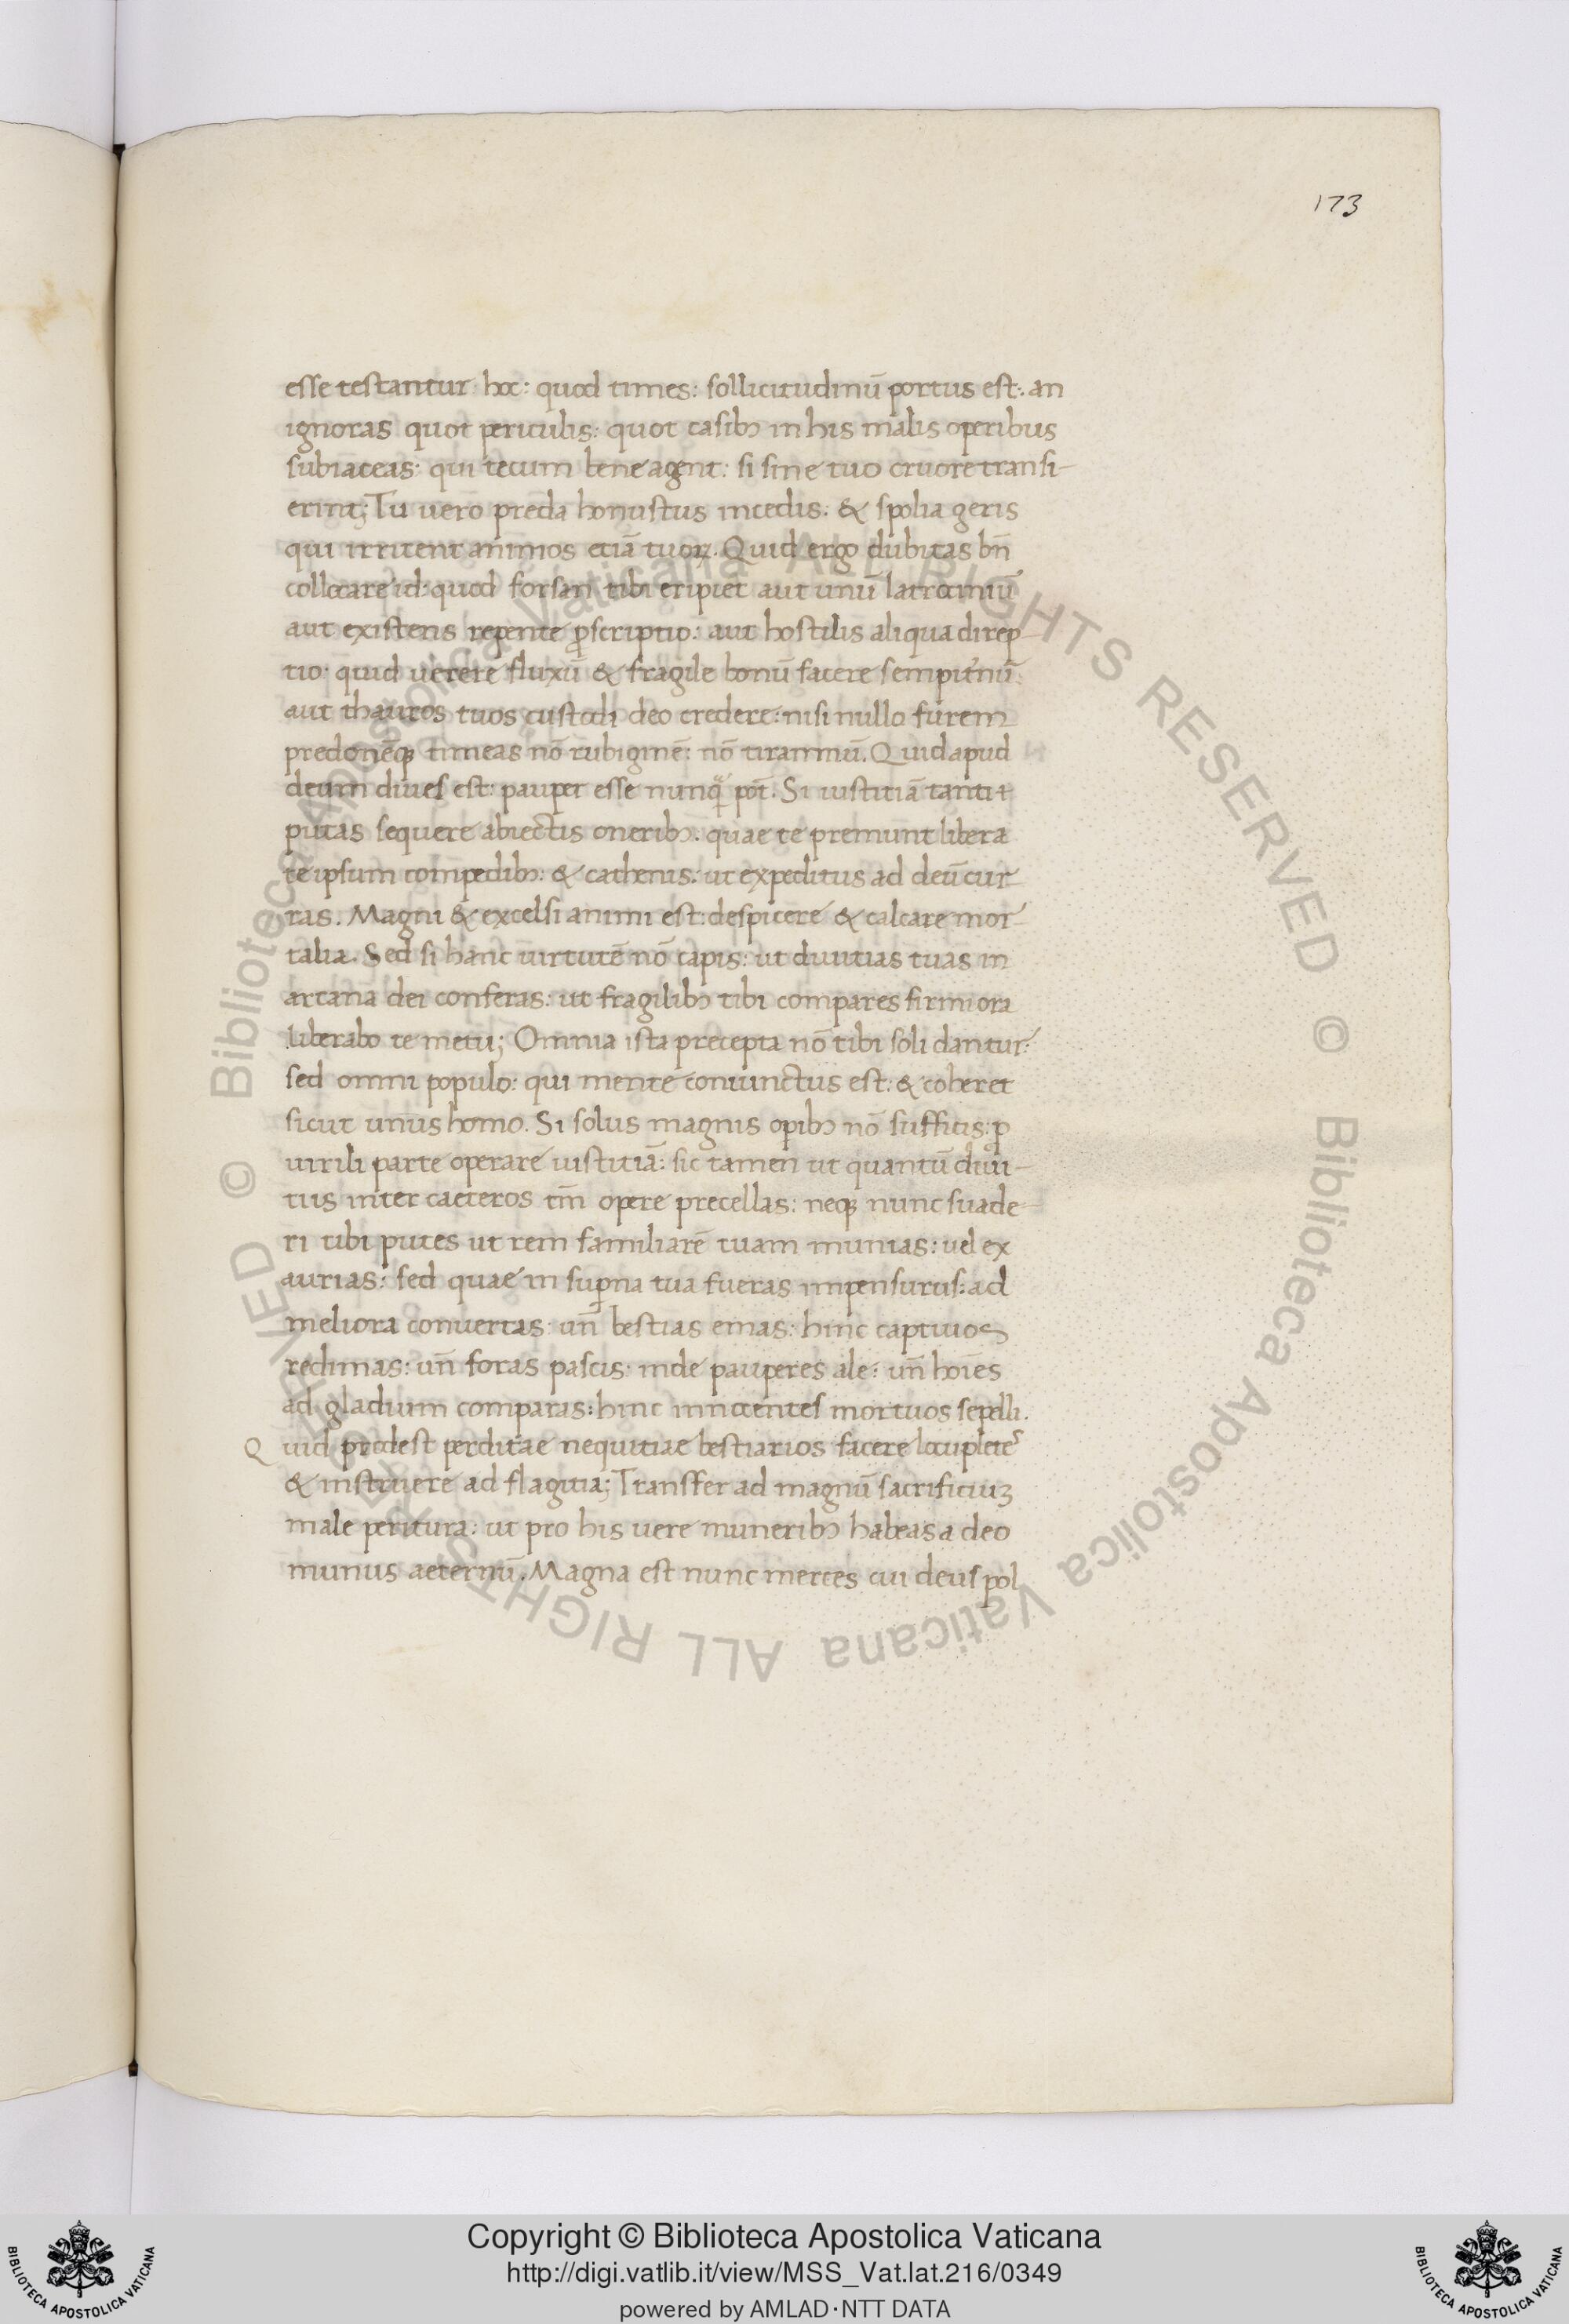 173
esse testantur hoc: quod times: sollicitudinū portus est: an
ignoras quot periculis: quot casibꝰ in his malis operibus
subiaceas: qui tecum bene agent: si sine tuo cruore transi-
erint; Tu uero preda honustus incedis. & spolia geris
qui irritent animos etiā tuoꝝ. Quid ergo dubitas bn̄
collocare id: quod forsan tibi eripiet aut unū latrociniū
aut existens repente ꝓscriptio: aut hostilis aliqua direp-
tio: quid uerere fluxū & fragile bonū facere sempit̄nū:
aut thauros tuos custodi deo credere: nisi nullo furem
predonēqꝫ timeas nō rubiginē: nō tirannū. Quid apud
deum diues est: pauper esse nunꝗ̄ pōt. Si iustitiā tanti
putas sequere abiectis oneribꝰ: quae te premunt libera
te ipsum compedibꝰ: & cathenis: ut expeditus ad deū cur
ras. Magni & excelsi animi est: despicere & calcare mor-
talia. Sed si hanc uirtutē nō capis: ut diuitias tuas in
arcana dei conferas: ut fragilibꝰ tibi compares firmiora
liberabo te metu; Omnia ista precepta nō tibi soli dantur:
sed omni populo: qui mente coniunctus est: & coheret
sicut unus homo. Si solus magnis oꝑibꝰ nō sufficis: ꝓ
uirili parte operare iustitiā: sic tamen ut quantū diui-
tiis inter caeteros tm̄ opere precellas: neqꝫ nunc suade-
ri tibi putes ut rem familiarē tuam munias: uel ex
aurias: sed quae in suꝑna tua fueras impensurus: ad
meliora conuertas: un̄ bestias emas: hinc captiuos
redimas: un̄ foras pascis: inde pauperes ale: un̄ hoīes
ad gladium comparas: hinc innocentes mortuos sepelli.
Quid prodest perditae nequitiae bestiarios facere locuplete
& instruere ad flagitia; Transfer ad magnū sacrificiuꝫ
male peritura: ut pro his uere muneribꝰ habeas a deo
munus aeternū. Magna est nunc merces cui deus pol
© Biblioteca Apostolica Vaticana ALL RIGHTS RESERVED © Biblioteca Apostolica Vaticana ALL RIGHTS RESERVED
Copyright © Biblioteca Apostolica Vaticana
http://digi.vatlib.it/view/MSS_Vat.lat.216/0349
powered by AMLAD·NTT DATA
BIBLIOTECA APOSTOLICA VATICANA
BIBLIOTECA APOSTOLICA VATICANA